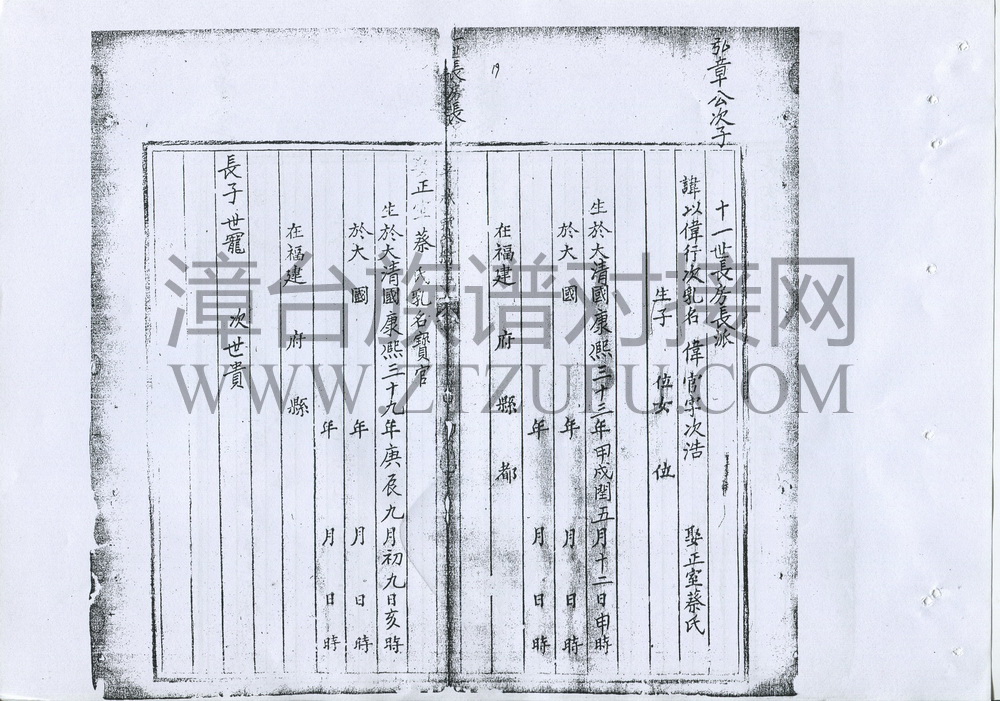 弘章公次子
十一世長房長派
諱以偉行次乳名 偉官字次浩 娶正室蔡氏
生子 位女 位
生於大清國康熙三十三年甲戌閏五月十二日申時
於大 國 年 月 日 時
年 月 日 時
在福建 府 縣 都
19
長房長
正室蔡氏乳名寶官
生於大清國康熙三十九年庚辰九月初九日亥時
於大 國 年 月 日 時
年 月 日 時
在福建 府 縣
長子世寵 次世貴
漳台族谱对接网
WWW.ZTZUPU.COM